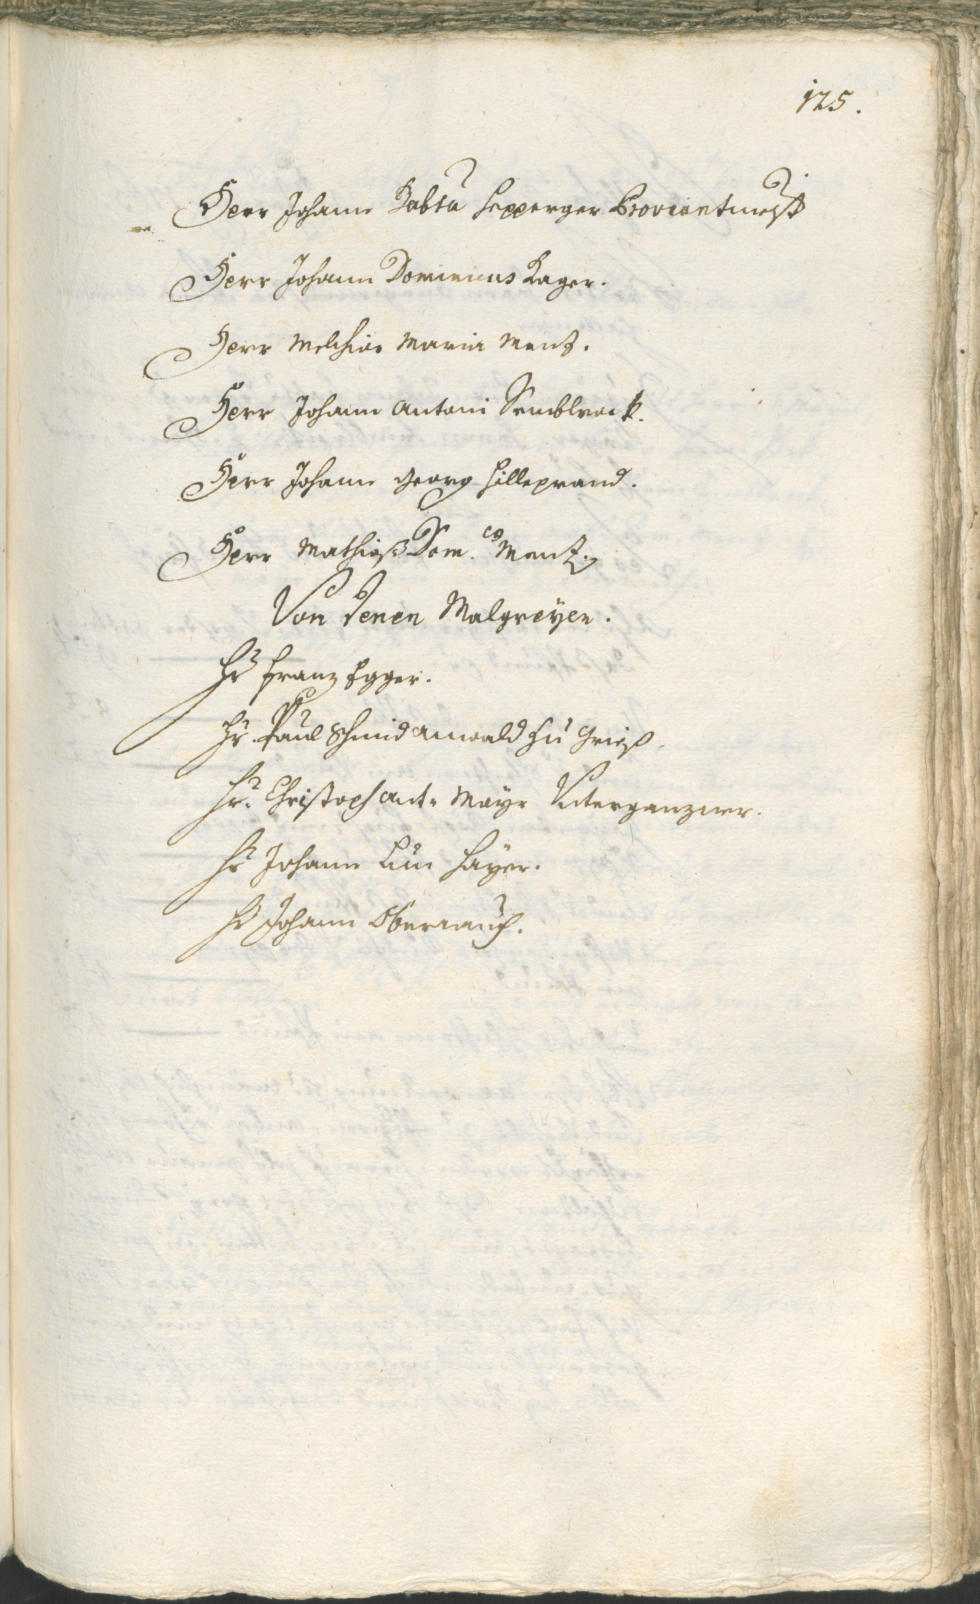 125.
Herr Johann Babta Hepperger Proviantmestr
Herr Johann Dominicus Rager.
Herr Melchior Maria Menz.
Herr Johann Antoni Sembkrock.
Herr Johann Georg Hilleprand.
Herr Mathiaß Dom.co Menz.
Von denen Malgreyen.
Hr Franz Egger.
Hr. Paul Schmid Anwald zu Grieß.
Hr. Christoph Ant. Mayr Unterganzner.
Hr Johann Hayer.
Hr Johann Oberrauch.